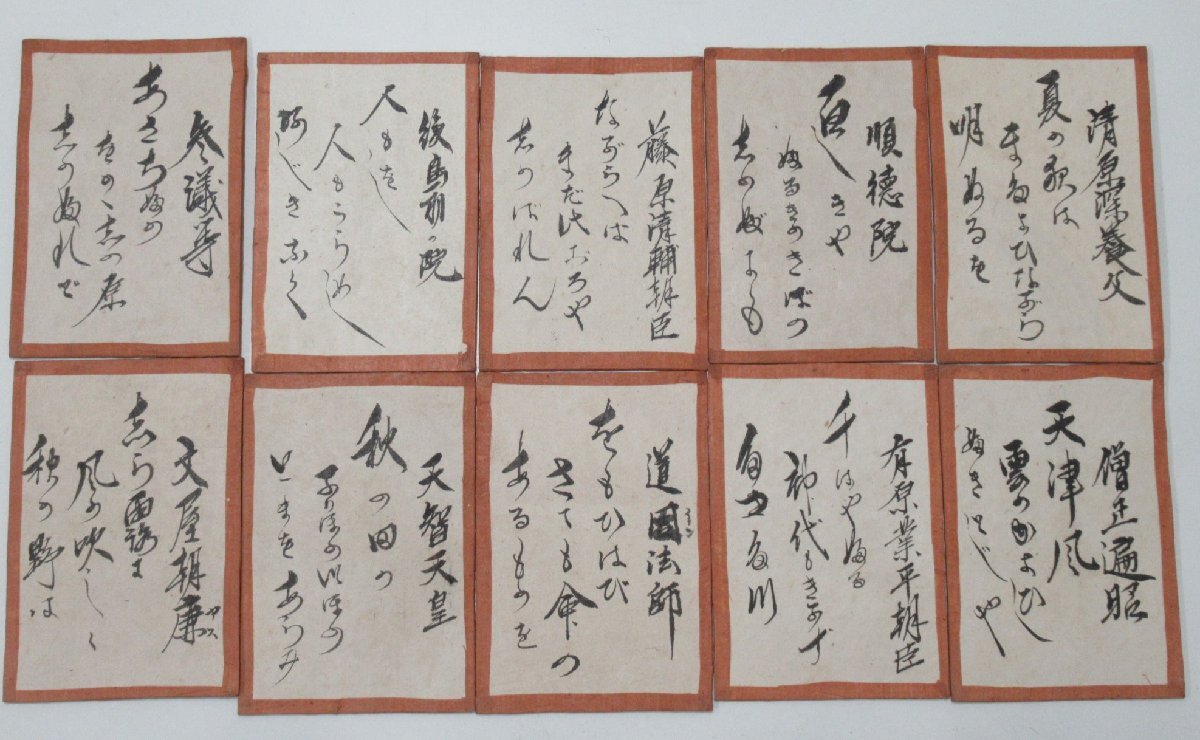 清原深養父
夏の夜は
まだよひながら
明ぬるを
順徳院
百しきや
ふるきのきばの
しのぶにも
藤原清輔朝臣
ながらへば
まだ此ごろや
しのばれん
後鳥羽の院
人もをし
人もうらめし
あじきなく
参議等
あさぢふの
をのゝしの原
しのぶれど
僧正遍昭
天津風
雲のかよひ
ふきとじよ
有原業平朝臣
千はやふる
神代もきかず
たつた川
道因法師
をもひはび
さても命の
あるものを
天智天皇
秋の田の
かりほのいほの
とまをあらみ
文屋朝康
ヤス
しら露に
風の吹しく
秋の野は